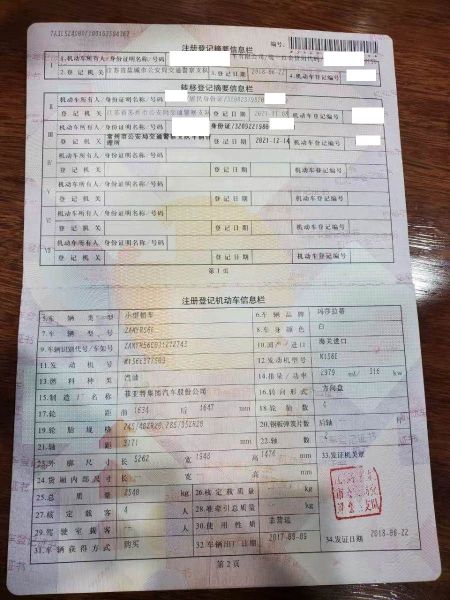 注册登记摘要信息栏
编号:
1.机动车所有人/身份证明名称/号码
2.登记机关 江苏省盐城市公安局交通警察支队 3.登记日期 2018-06-22 4.机动车登记编号
转移登记摘要信息栏
II 机动车所有人/身份证明名称/号码
登记机关 江苏省苏州市公安局交通警察支队 登记日期 机动车登记编号
III 机动车所有人/身份证明名称/号码
登记机关 常州市公安局交通警察支队车辆管理所 登记日期 2021-12-14 机动车登记编号
机动车所有人/身份证明名称/号码
登记机关 登记日期 机动车登记编号
机动车所有人/身份证明名称/号码
登记机关 登记日期 机动车登记编号
VI
机动车所有人/身份证明名称/号码
登记机关 登记日期 机动车登记编号
VII 机动车所有人/身份证明名称/号码
登记机关 登记日期 机动车登记编号
第1页
注册登记机动车信息栏
5.车辆类型 小型轿车 6.车辆品牌 玛莎拉蒂
7.车辆型号 8.车身颜色 白
9.车辆识别代号/车架号 10.国产/进口 海关进口
11.发动机号 12.发动机型号 M156E
13.燃料种类 汽油 14.排量/功率 ml/ 316 kw
15.制造厂名称 菲亚特集团汽车股份公司 16.转向形式 方向盘
17.轮距 前 1634 后 1647 mm 18.轮胎数 4
19.轮胎规格 20.钢板弹簧片数 后轴
21.轴距 3171 mm
23.外廓尺寸 长 5262 宽 1948 高 mm 33.发证机关章
24.货厢内部尺寸 长 宽 高 mm
25.总质量 2540 kg 26.核定载质量 kg
27.核定载客 4 人 28.准牵引总质量 kg
29.驾驶室载客 人 30.使用性质 非营运
31.车辆获得方式 购买 32.车辆出厂日期 34.发证日期 2018-06-22
第2页